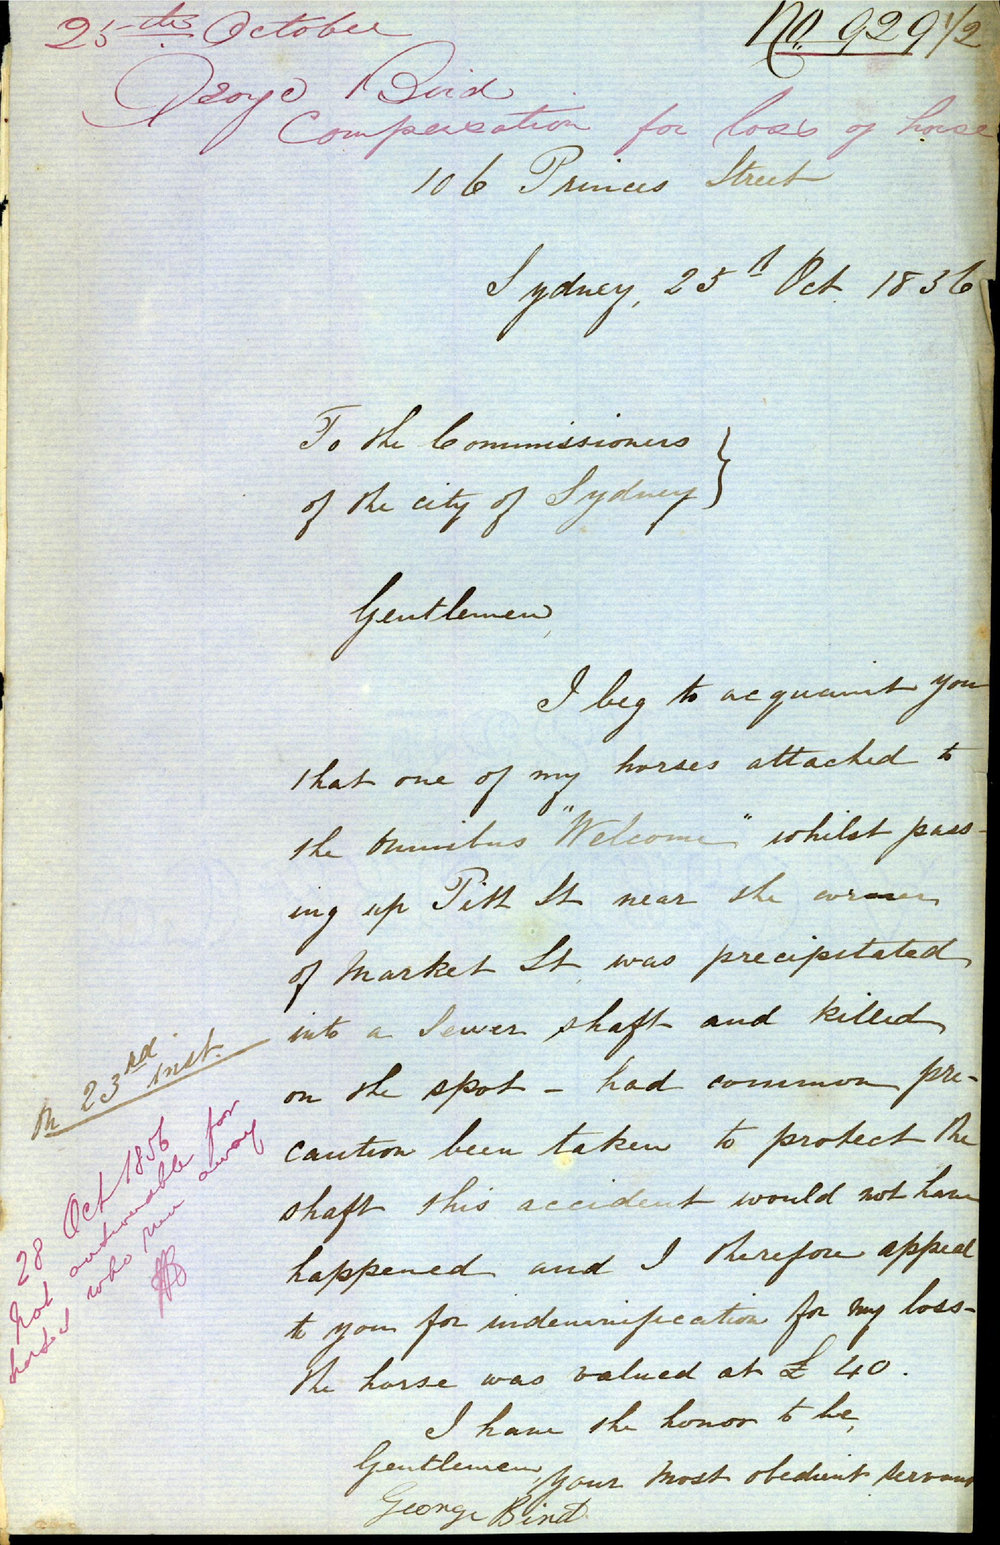 25th October
No. 929 1/2
George Bird
Compensation for loss of horse
106 Princes Street
Sydney, 25th Oct 1856
To the Commissioners
of the city of Sydney
Gentlemen,
I beg to acquaint you
that one of my horses attached to
the omnibus "Welcome" whilst pass-
ing up Pitt St near the corner
of Market St was precipitated
into a Sewer shaft and killed
on the spot - had common pre-
caution been taken to protect the
shaft this accident would not have
happened and I therefore appeal
to you for indemnification for my loss-
the horse was valued at £40.
I have the honor to be,
Gentlemen, your most obedient servant
George Bird
On 23rd inst.
28 Oct 1856
not answerable for
horses who run away